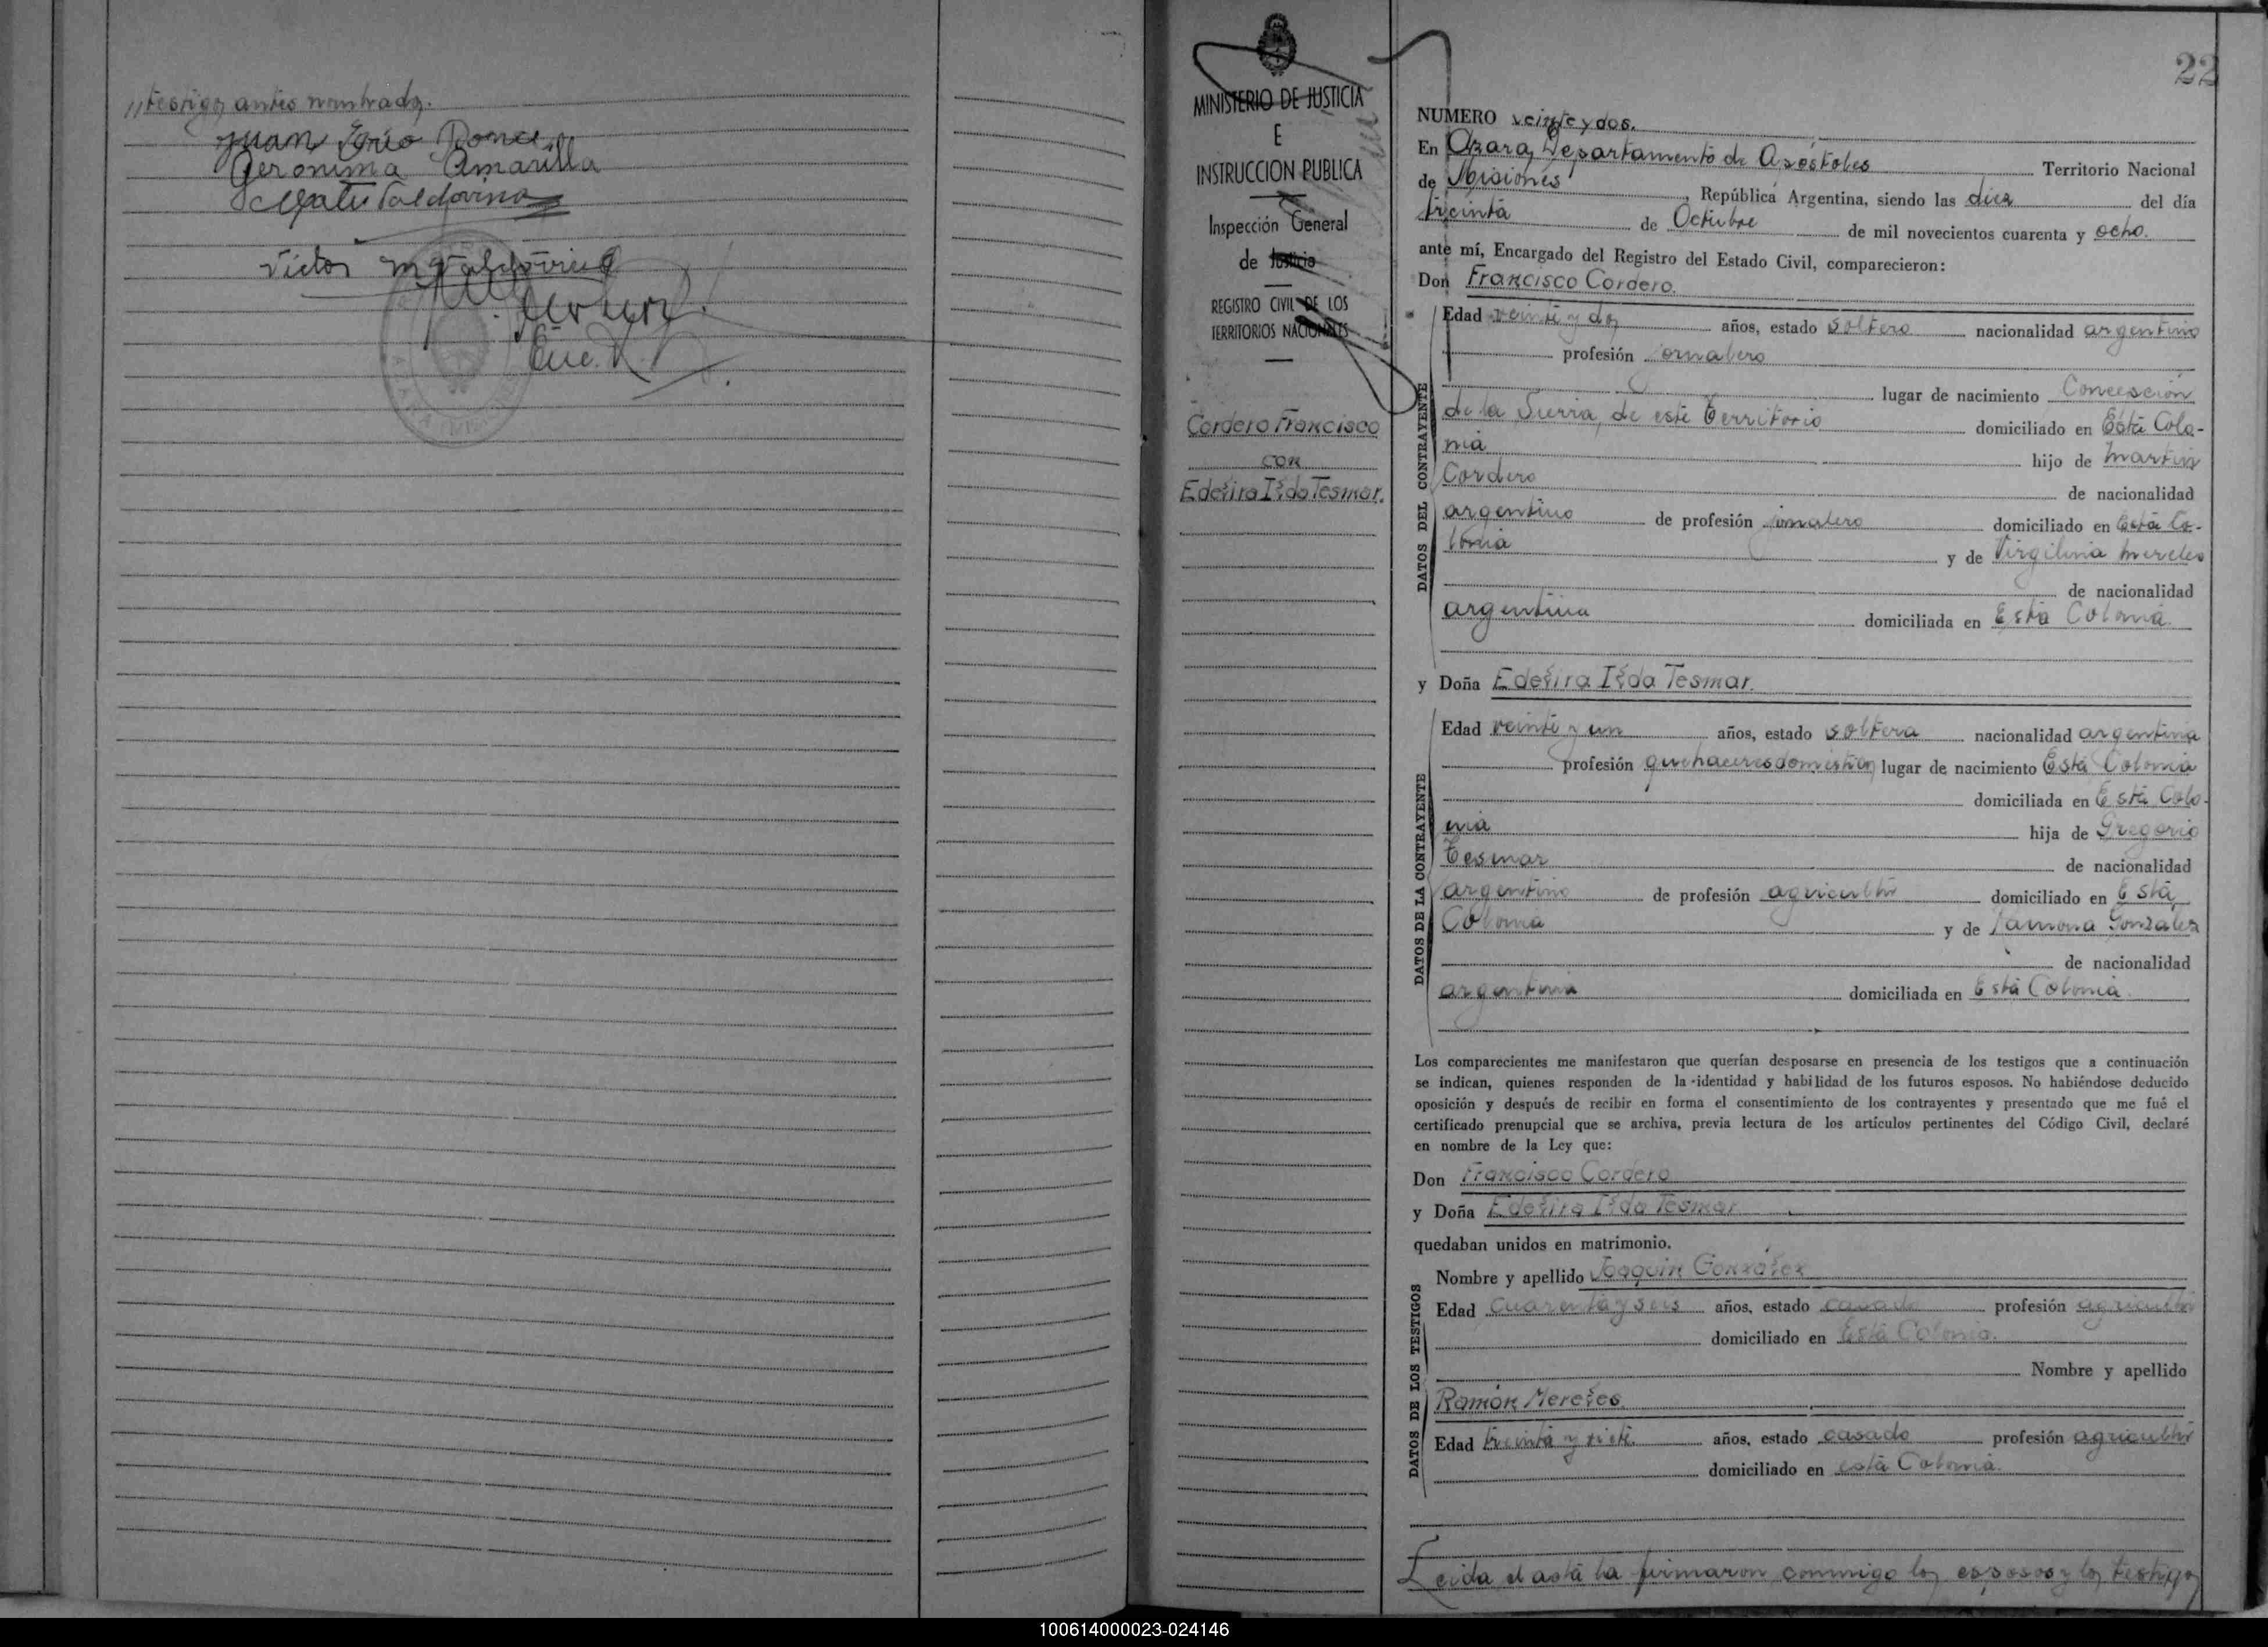 //testigos antes nombrados.
Juan Ponce
Geronima Amarilla
Valdovino
Victor M Valdovino
Enc. R.
MINISTERIO DE JUSTICIA
E
INSTRUCCION PUBLICA
Inspección General
de Justicia
REGISTRO CIVIL DE LOS
TERRITORIOS NACIONALES
Cordero Francisco
con
Edelira Ilda Tesmar.
22
NUMERO veinte y dos.
En Azara, Departamento de Apóstoles Territorio Nacional
de Misiones, República Argentina, siendo las diez del día
treinta de Octubre de mil novecientos cuarenta y ocho.
ante mí, Encargado del Registro del Estado Civil, comparecieron:
Don Francisco Cordero.
DATOS DEL CONTRAYENTE
Edad veinte y dos años, estado soltero nacionalidad argentino
profesión jornalero
lugar de nacimiento Concepción
de la Sierra, de este Territorio domiciliado en Esta Colo-
nia hijo de Martin
Cordero de nacionalidad
argentino de profesión jornalero domiciliado en Esta Co-
lonia y de Virgilina Mereles
de nacionalidad
argentina domiciliada en Esta Colonia.
y Doña Edelira Ilda Tesmar.
DATOS DE LA CONTRAYENTE
Edad veinte y un años, estado soltera nacionalidad argentina
profesión quehaceres domésticos lugar de nacimiento Esta Colonia
domiciliada en Esta Colo-
nia hija de Gregorio
Tesmar de nacionalidad
argentino de profesión agricultor domiciliado en Esta
Colonia y de Ramona Gonzalez
de nacionalidad
argentina domiciliada en Esta Colonia.
Los comparecientes me manifestaron que querían desposarse en presencia de los testigos que a continuación
se indican, quienes responden de la identidad y habilidad de los futuros esposos. No habiéndose deducido
oposición y después de recibir en forma el consentimiento de los contrayentes y presentado que me fué el
certificado prenupcial que se archiva, previa lectura de los artículos pertinentes del Código Civil, declaré
en nombre de la Ley que:
Don Francisco Cordero
y Doña Edelira Ilda Tesmar
quedaban unidos en matrimonio.
DATOS DE LOS TESTIGOS
Nombre y apellido Joaquin González
Edad cuarenta y seis años, estado casado profesión agricultor
domiciliado en Esta Colonia.
Nombre y apellido
Ramón Mereles
Edad treinta y siete años, estado casado profesión agricultor
domiciliado en esta Colonia.
Leida el acta la firmaron conmigo los esposos y los testigos
100614000023-024146